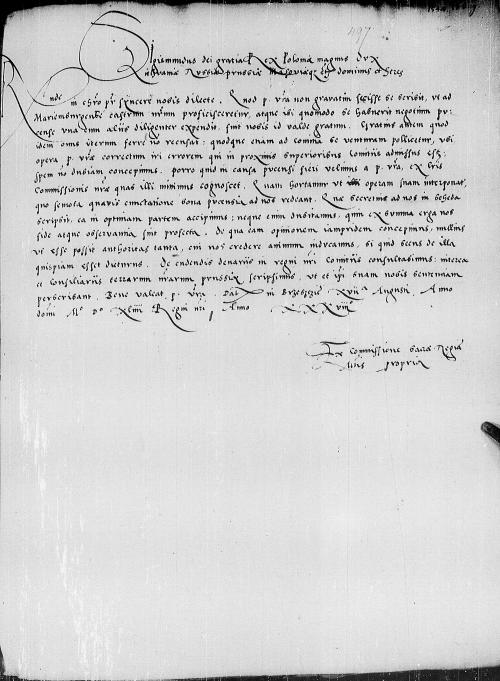 497
Sigismundus dei gratia Rex Poloniae magnus Dux
Lithuaniae Russiae prussiae Masoviaeque etc dominus et heres
Rnde in chro pr syncere nobis dilecte. Quod p. vra non gravatim fecisse se scribit, ut ad
Marienburgense castrum nrum proficisceretur, atque ibi quomodo se haberet negotium pu-
cense una cum aliis diligenter expendit, fuit nobis id valde gratum. Gratius autem quod
idem onus iterum ferre non recusat: quodque etiam ad comitia se venturam pollicetur, ubi
opera p. vrae correctum iri errorem qui in proximis superioribus comitiis admissus est:
spem non dubiam concepimus. porro quid in causa pucensi fieri velimus a p. vra, ex lris
Commissionis nrae quas illi mittimus cognoscet. Quam hortamur ut operam suam interponat,
quo semota quavis cunctatione bona pucensia ad nos redeant. Quae secretius ad nos in scheda
scripsit, ea in optimam partem accipimus: neque enim dubitamus, quin ex summa erga nos
fide atque observantia sint profecta. de qua eam opinionem iampridem concepimus, nullius
ut esse possit authoritas tanta, cui nos credere animum inducamus, si quid secus de illa
quispiam esset dicturus. De cudendo denario in regni nri Comitiis consultabimus: interea
et Consiliariis terrarum nrarum prussiae scripsimus, ut et ipsi suam nobis sententiam
perscribant. Bene valeat p. vra. Dat in Brzesczie XVII Augusti, Anno
domi Mo Do XLIIII Regni nri, Anno XXXVIII
Ex Commissione sacrae Regiae
Mtis propria